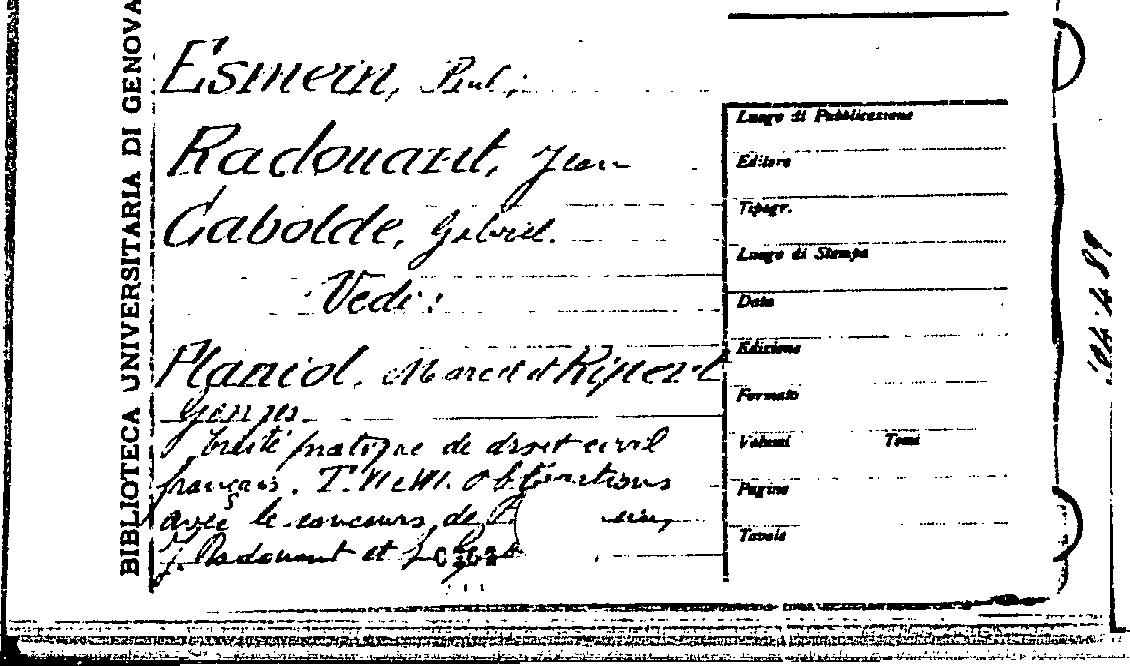 BIBLIOTECA UNIVERSITARIA DI GENOVA
Esmein, Paul;
Radouant, Jean
Gabolde, Gabriel.
Vedi:
Planiol, Marcel et Ripert
Georges.
Traité pratique de droit civil
français. T. VI e VII. Obligations
avec le concours de
J. Radouant et
Luogo di Pubblicazione
Editore
Tipogr.
Luogo di Stampa
Data
Edizione
Formato
Volumi Tomi
Pagine
Tavole